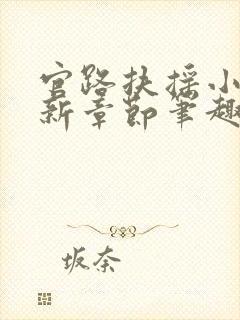 官路扶摇小
新章节笔趣
坂奈